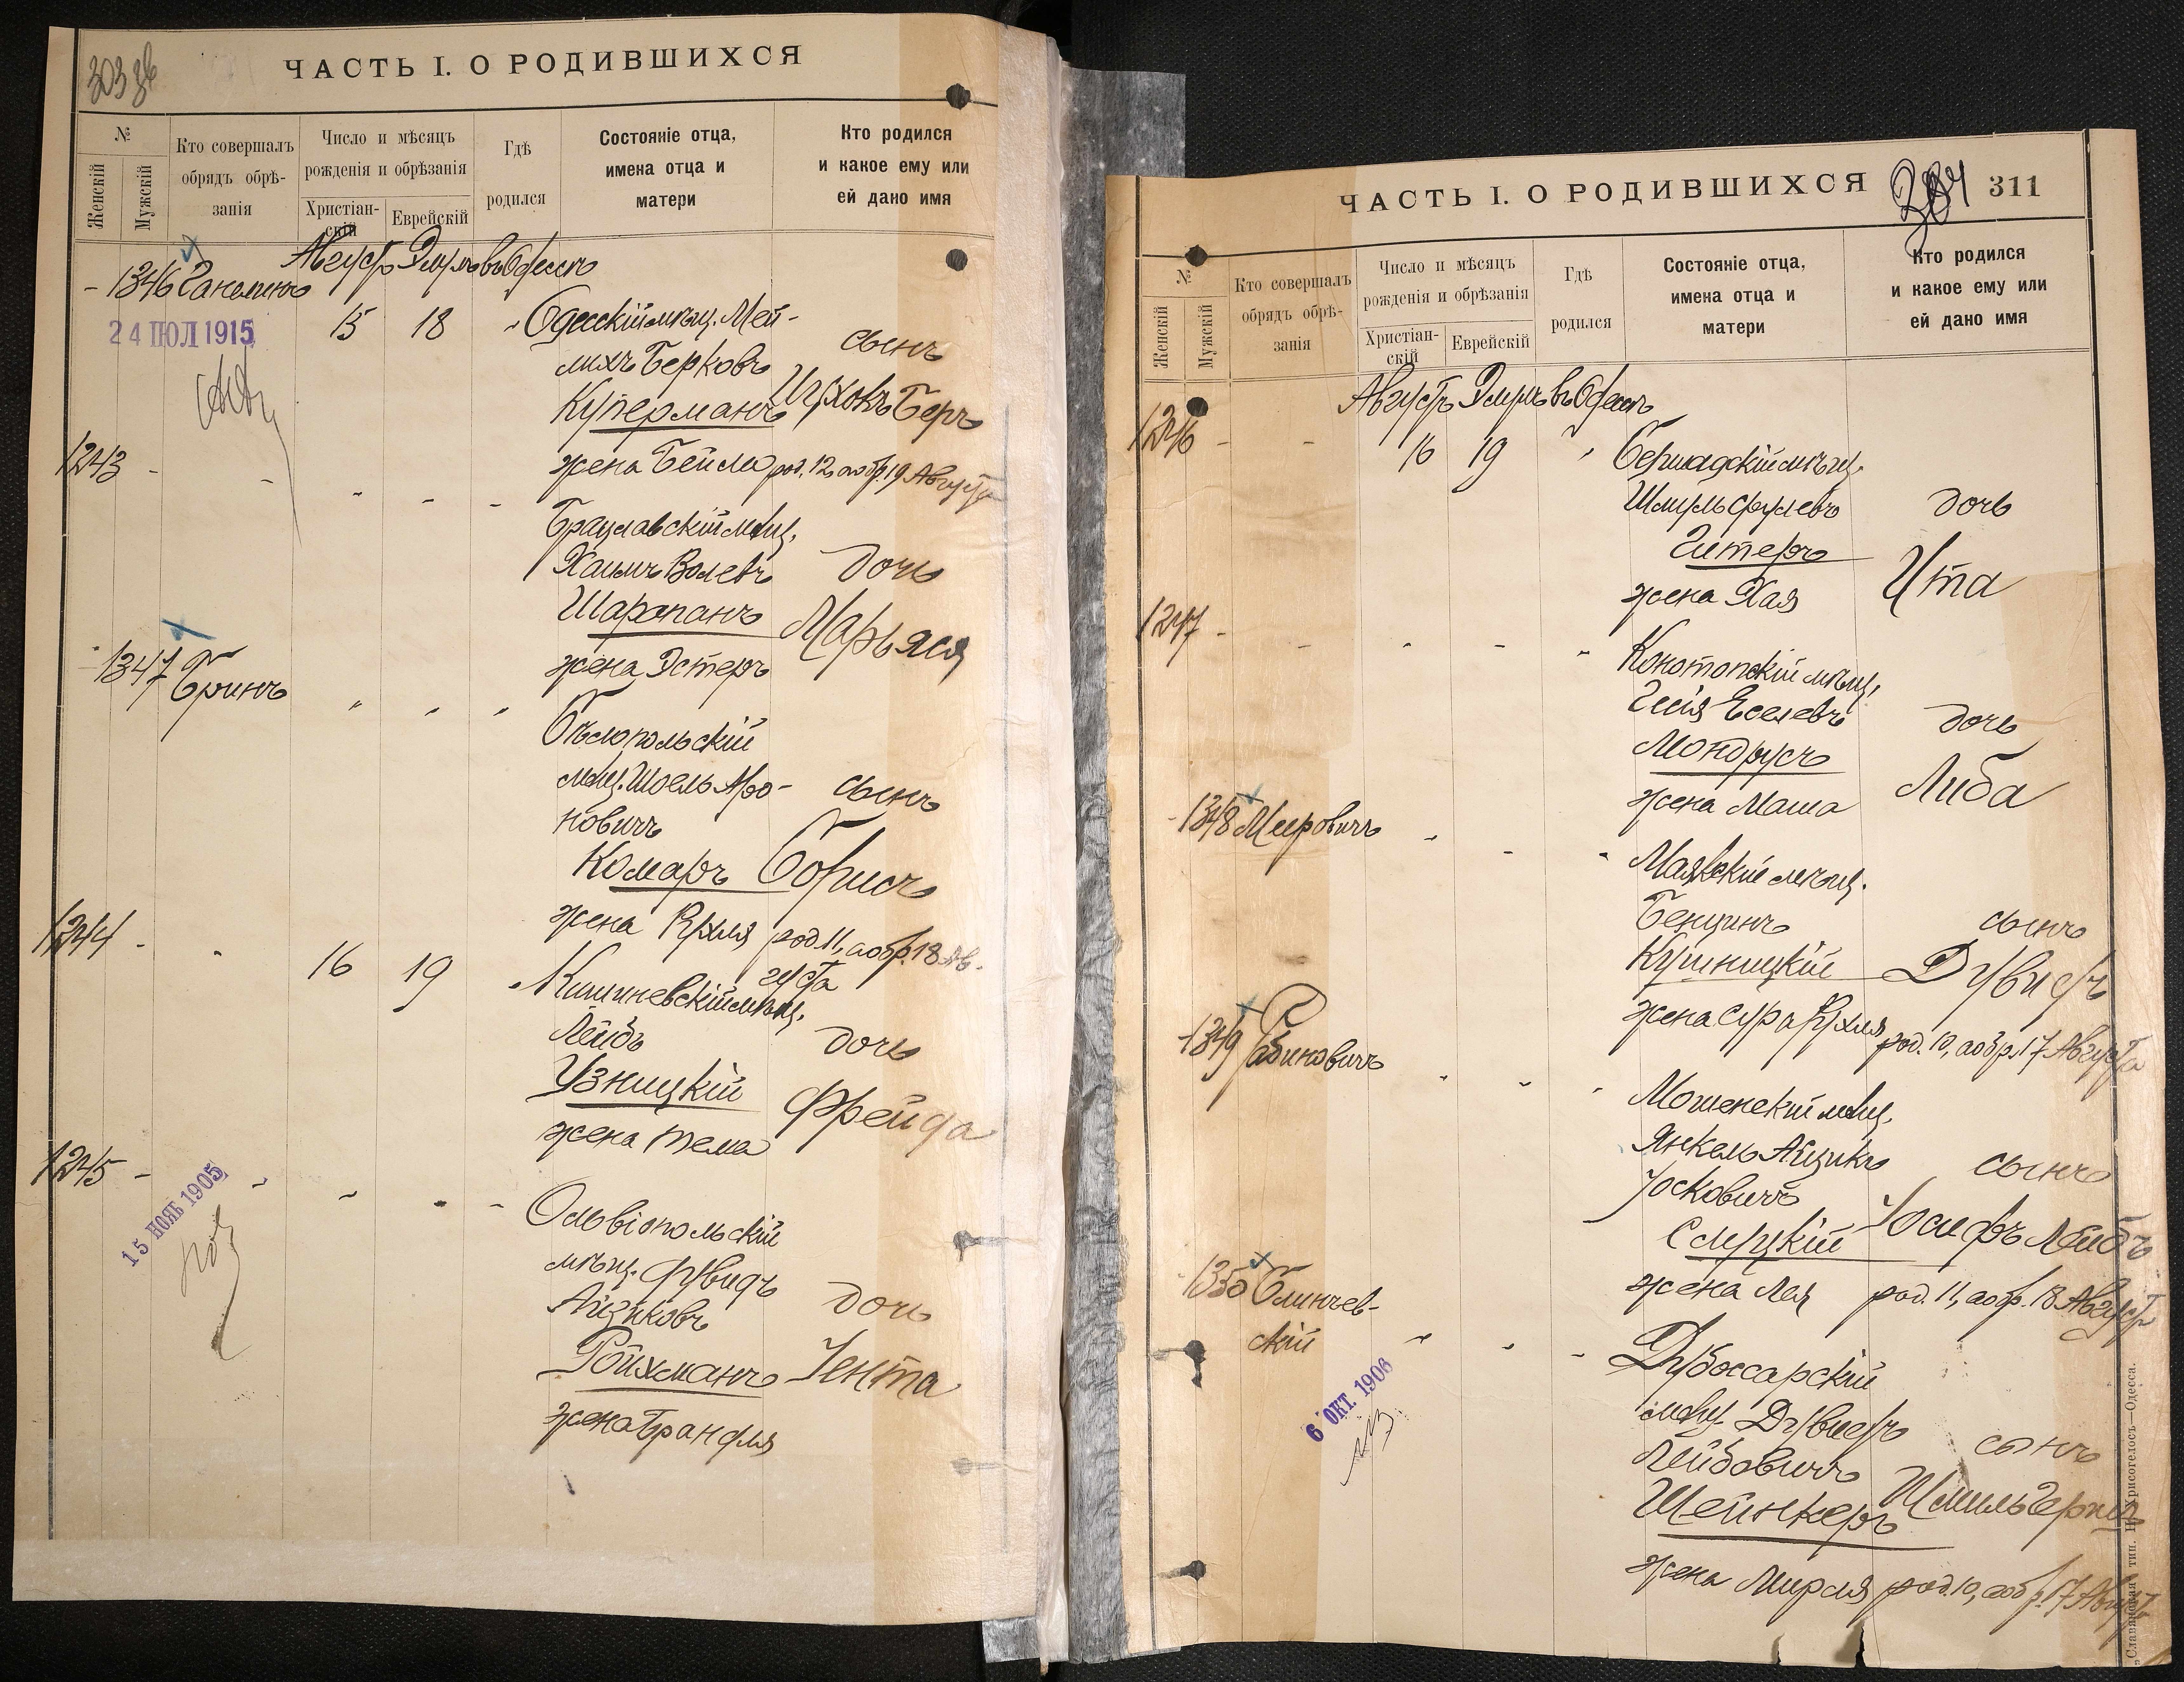 303 зв
ЧАСТЬ I. О РОДИВШИХСЯ
№
Женскій
Мужскій
Кто совершалъ
обрядъ обрѣ-
занія
Число и мѣсяцъ
рожденія и обрѣзанія
Христіан-
скій
Еврейскій
Гдѣ
родился
Состояніе отца,
имена отца и
матери
Кто родился
и какое ему или
ей дано имя
Августъ Элулъ въ Одессѣ
1346
24 ІЮЛ 1915
15 18 Одесскій мѣщ. Мей-
лихъ Берковъ
Куперманъ
жена Бейла
сынъ
Ицхокъ Беръ
род. 12, а обр. 19 Августа
1243
Брацлавскій мѣщ.
Хаимъ Волевъ
Шарапанъ
жена Эстеръ
дочь
Марьяся
1347 Бринъ
Бѣлопольскій
мѣщ. Шоель Аро-
новичъ
Комаръ
жена Рухля
сынъ
Борисъ
род. 11, а обр. 18 Ав-
густа
1244
16 19 Кишиневскій мѣщ.
Лейбъ
Узницкій
жена Тема
дочь
Фрейда
1245
15 НОЯБ 1905
Ольвіопольскій
мѣщ. Дувидъ
Айзиковъ
Ройхманъ
жена Брандля
дочь
Іента
ЧАСТЬ I. О РОДИВШИХСЯ
304 311
№
Женскій
Мужскій
Кто совершалъ
обрядъ обрѣ-
занія
Число и мѣсяцъ
рожденія и обрѣзанія
Христіан-
скій
Еврейскій
Гдѣ
родился
Состояніе отца,
имена отца и
матери
Кто родился
и какое ему или
ей дано имя
Августъ Элулъ въ Одессѣ
1246
16 19 Бершадскій мѣщ.
Шмуль Срулевъ
Гитеръ
жена Хая
дочь
Ита
1247
Конотопскій мѣщ.
Еселевъ
Мондрусъ
жена Маша
дочь
Либа
1348 Мееровичъ
Маякскій мѣщ.
Бенционъ
Кушницкій
жена Сура Рухля
сынъ
Дувидъ
род. 10, а обр. 17 Августа
1349 Рабиновичъ
Мошенскій мѣщ.
Янкель Айзикъ
Іосковичъ
Слуцкій
жена Лея
сынъ
Іосифъ Лейбъ
род. 11, а обр. 18 Августа
1350 Блинчев-
скій
6 ОКТ. 1906
Дубоссарскій
мѣщ. Дувидъ
Лейбовичъ
Шейнкеръ
жена Мирля
сынъ
Шмиль Герш
род. 10, а обр. 17 Августа
„Славянская“ тип. Н. Хрисогелосъ—Одесса.